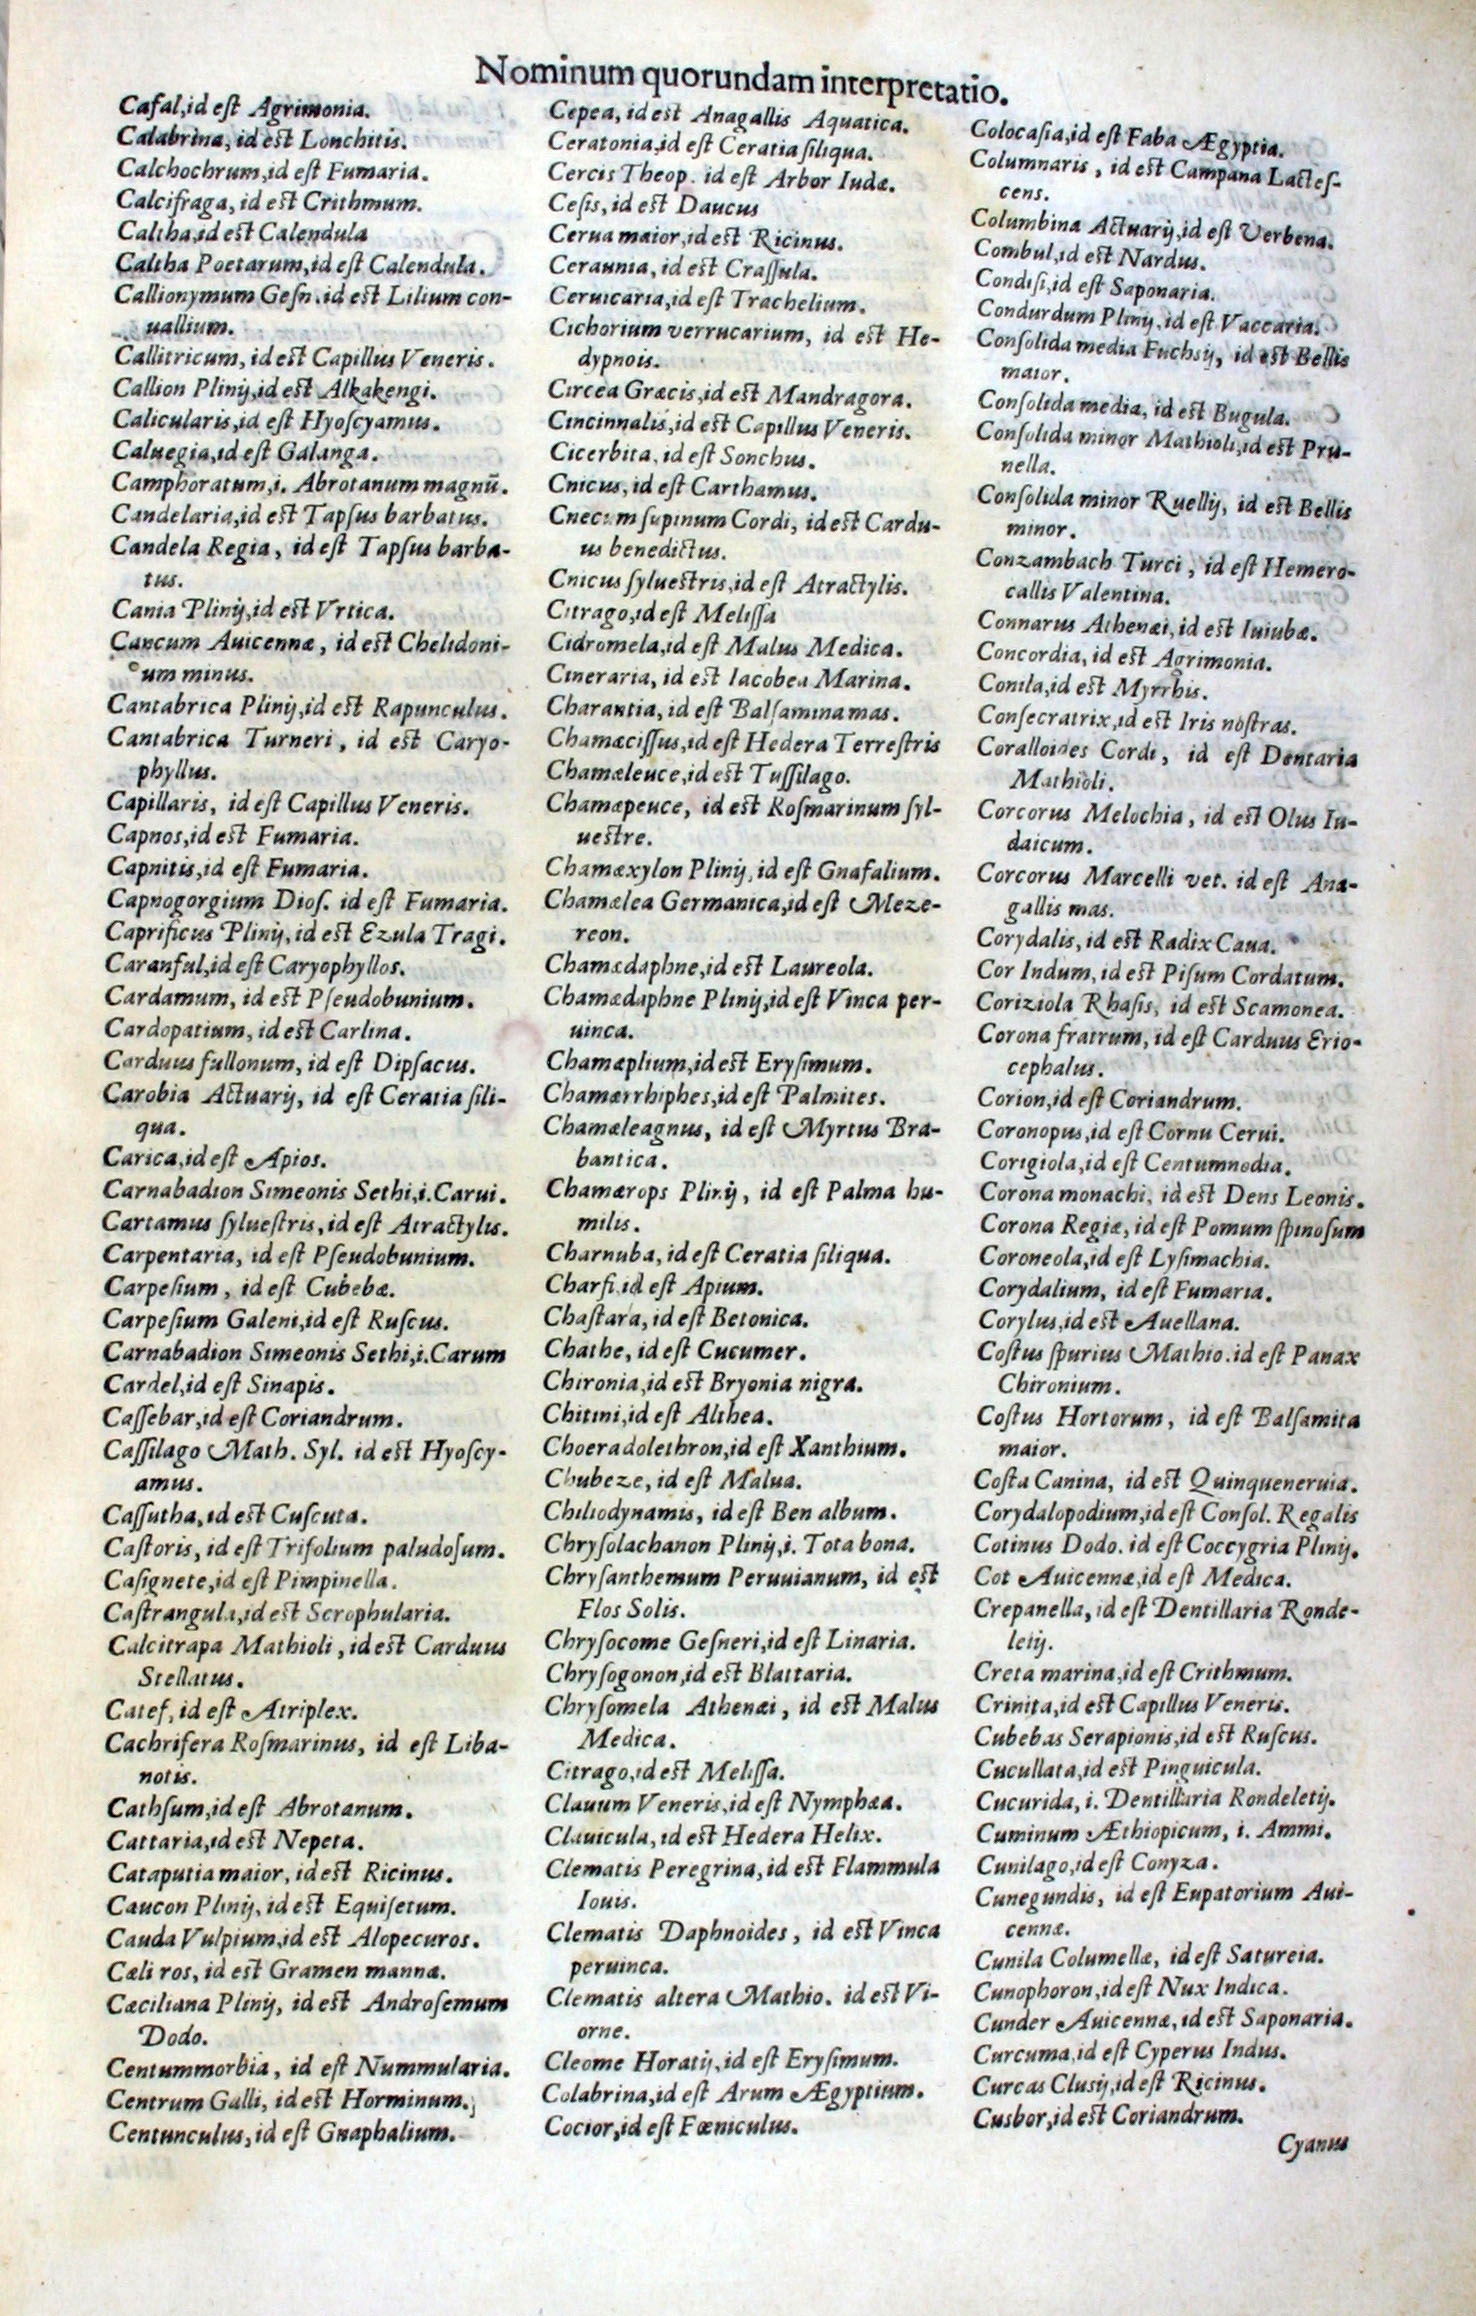 Nominum quorundam interpretatio.
Cafal,id eſt Agrimonia.
Calabrina, id eſt Lonchitis.
Calchochrum,id eſt Fumaria.
Calcifraga, id eſt Crithmum.
Caltha,id eſt Calendula
Caltha Poetarum,id eſt Calendula.
Callionymum Geſn.id eſt Lilium con-
uallium.
Callitricum, id eſt Capillus Veneris.
Callion Plinij,id eſt Alkakengi.
Calicularis,id eſt Hyoſcyamus.
Caluegia,id eſt Galanga.
Camphoratum,i. Abrotanum magnū.
Candelaria,id eſt Tapſus barbatus.
Candela Regia, id eſt Tapſus barba-
tus.
Cania Plinij,id eſt Vrtica.
Cancum Auicennæ, id eſt Chelidoni-
um minus.
Cantabrica Plinij,id eſt Rapunculus.
Cantabrica Turneri, id eſt Caryo-
phyllus.
Capillaris, id eſt Capillus Veneris.
Capnos,id eſt Fumaria.
Capnitis,id eſt Fumaria.
Capnogorgium Dioſ. id eſt Fumaria.
Caprificus Plinij, id eſt Ezula Tragi.
Caranful,id eſt Caryophyllos.
Cardamum, id eſt Pſeudobunium.
Cardopatium, id eſt Carlina.
Carduus fullonum, id eſt Dipſacus.
Carobia Actuarij, id eſt Ceratia ſili-
qua.
Carica,id eſt Apios.
Carnabadion Simeonis Sethi,i.Carui.
Cartamus ſylueſtris, id eſt Atractylis.
Carpentaria, id eſt Pſeudobunium.
Carpeſium, id eſt Cubebæ.
Carpeſium Galeni,id eſt Ruſcus.
Carnabadion Simeonis Sethi,i.Carum
Cardel,id eſt Sinapis.
Caſſebar,id eſt Coriandrum.
Caſſilago Math. Syl. id eſt Hyoſcy-
amus.
Caſſutha, id eſt Cuſcuta.
Caſtoris, id eſt Trifolium paludoſum.
Caſignete,id eſt Pimpinella.
Caſtrangula,id eſt Scrophularia.
Calcitrapa Mathioli, id eſt Carduus
Stellatus.
Catef, id eſt Atriplex.
Cachrifera Roſmarinus, id eſt Liba-
notis.
Cathſum,id eſt Abrotanum.
Cattaria,id eſt Nepeta.
Cataputia maior, id eſt Ricinus.
Caucon Plinij, id eſt Equiſetum.
Cauda Vulpium,id eſt Alopecuros.
Cæli ros, id eſt Gramen mannæ.
Cæciliana Plinij, id eſt Androſemum
Dodo.
Centummorbia, id eſt Nummularia.
Centrum Galli, id eſt Horminum.
Centunculus, id eſt Gnaphalium.
Cepea, id est Anagallis Aquatica.
Ceratonia,id eſt Ceratia ſiliqua.
Cercis Theop. id eſt Arbor Iudæ.
Ceſis, id eſt Daucus
Cerua maior,id eſt Ricinus.
Ceraunia, id eſt Craſſula.
Ceruicaria,id eſt Trachelium.
Cichorium verrucarium, id eſt He-
dypnois.
Circea Græcis,id eſt Mandragora.
Cincinnalis,id eſt Capillus Veneris.
Cicerbita, id eſt Sonchus.
Cnicus, id eſt Carthamus.
Cnecum ſupinum Cordi, id eſt Cardu-
us benedictus.
Cnicus ſylueſtris,id eſt Atractylis.
Citrago,id eſt Meliſſa
Cidromela,id eſt Malus Medica.
Cineraria, id eſt Iacobea Marina.
Charantia, id eſt Balſamina mas.
Chamæciſſus,id eſt Hedera Terreſtris
Chamæleuce,id eſt Tuſſilago.
Chamæpeuce, id eſt Roſmarinum ſyl-
ueſtre.
Chamæxylon Plinij, id eſt Gnafalium.
Chamælea Germanica,id eſt Meze-
reon.
Chamædaphne,id eſt Laureola.
Chamædaphne Plinij,id eſt Vinca per-
uinca.
Chamæplium,id eſt Eryſimum.
Chamærrhiphes,id eſt Palmites.
Chamæleagnus, id eſt Myrtus Bra-
bantica.
Chamærops Plinij, id eſt Palma hu-
milis.
Charnuba, id eſt Ceratia ſiliqua.
Charfi,id eſt Apium.
Chaſtara, id eſt Betonica.
Chathe, id eſt Cucumer.
Chironia,id eſt Bryonia nigra.
Chitini,id eſt Althea.
Choeradolethron,id eſt Xanthium.
Chubeze, id eſt Malua.
Chiliodynamis, id eſt Ben album.
Chryſolachanon Plinij,i. Tota bona.
Chryſanthemum Peruuianum, id eſt
Flos Solis.
Chryſocome Geſneri,id eſt Linaria.
Chryſogonon,id eſt Blattaria.
Chryſomela Athenæi, id eſt Malus
Medica.
Citrago,id eſt Meliſſa.
Clauum Veneris,id eſt Nymphæa.
Clauicula, id eſt Hedera Helix.
Clematis Peregrina, id eſt Flammula
Iouis.
Clematis Daphnoides, id eſt Vinca
peruinca.
Clematis altera Mathio. id eſt Vi-
orne.
Cleome Horatij,id eſt Eryſimum.
Colabrina,id eſt Arum Ægyptium.
Cocior,id eſt Fœniculus.
Colocaſia,id eſt Faba Ægyptia.
Columnaris, id eſt Campana Lacteſ-
cens.
Columbina Actuarij,id eſt Verbena.
Combul,id eſt Nardus.
Condiſi,id eſt Saponaria.
Condurdum Plinij,id eſt Vaccaria.
Conſolida media Fuchſij, id eſt Bellis
maior.
Conſolida media, id eſt Bugula.
Conſolida minor Mathioli,id eſt Pru-
nella.
Conſolida minor Ruellij, id eſt Bellis
minor.
Conzambach Turci, id eſt Hemero-
callis Valentina.
Connarus Athenæi, id eſt Iuiubæ.
Concordia, id eſt Agrimonia.
Conila,id eſt Myrrhis.
Conſecratrix,id eſt Iris noſtras.
Coralloides Cordi, id eſt Dentaria
Mathioli.
Corcorus Melochia, id eſt Olus Iu-
daicum.
Corcorus Marcelli vet. id eſt Ana-
gallis mas.
Corydalis, id eſt Radix Caua.
Cor Indum, id eſt Piſum Cordatum.
Coriziola Rhaſis, id eſt Scamonea.
Corona fratrum, id eſt Carduus Erio-
cephalus.
Corion,id eſt Coriandrum.
Coronopus,id eſt Cornu Cerui.
Corigiola,id eſt Centumnodia.
Corona monachi, id eſt Dens Leonis.
Corona Regiæ, id eſt Pomum ſpinoſum
Coroneola,id eſt Lyſimachia.
Corydalium, id eſt Fumaria.
Corylus,id eſt Auellana.
Coſtus ſpurius Mathio.id eſt Panax
Chironium.
Coſtus Hortorum, id eſt Balſamita
maior.
Coſta Canina, id eſt Quinqueneruia.
Corydalopodium,id eſt Conſol. Regalis
Cotinus Dodo. id eſt Coccygria Plinij.
Cot Auicennæ,id eſt Medica.
Crepanella, id eſt Dentillaria Ronde-
letij.
Creta marina,id eſt Crithmum.
Crinita,id eſt Capillus Veneris.
Cubebas Serapionis,id eſt Ruſcus.
Cucullata,id eſt Pinguicula.
Cucurida, i. Dentillaria Rondeletij.
Cuminum Æthiopicum, i. Ammi.
Cunilago,id eſt Conyza.
Cunegundis, id eſt Eupatorium Aui-
cennæ.
Cunila Columellæ, id eſt Satureia.
Cunophoron,id eſt Nux Indica.
Cunder Auicennæ, id eſt Saponaria.
Curcuma,id eſt Cyperus Indus.
Curcas Cluſij,id eſt Ricinus.
Cusbor,id eſt Coriandrum.
Cyanus